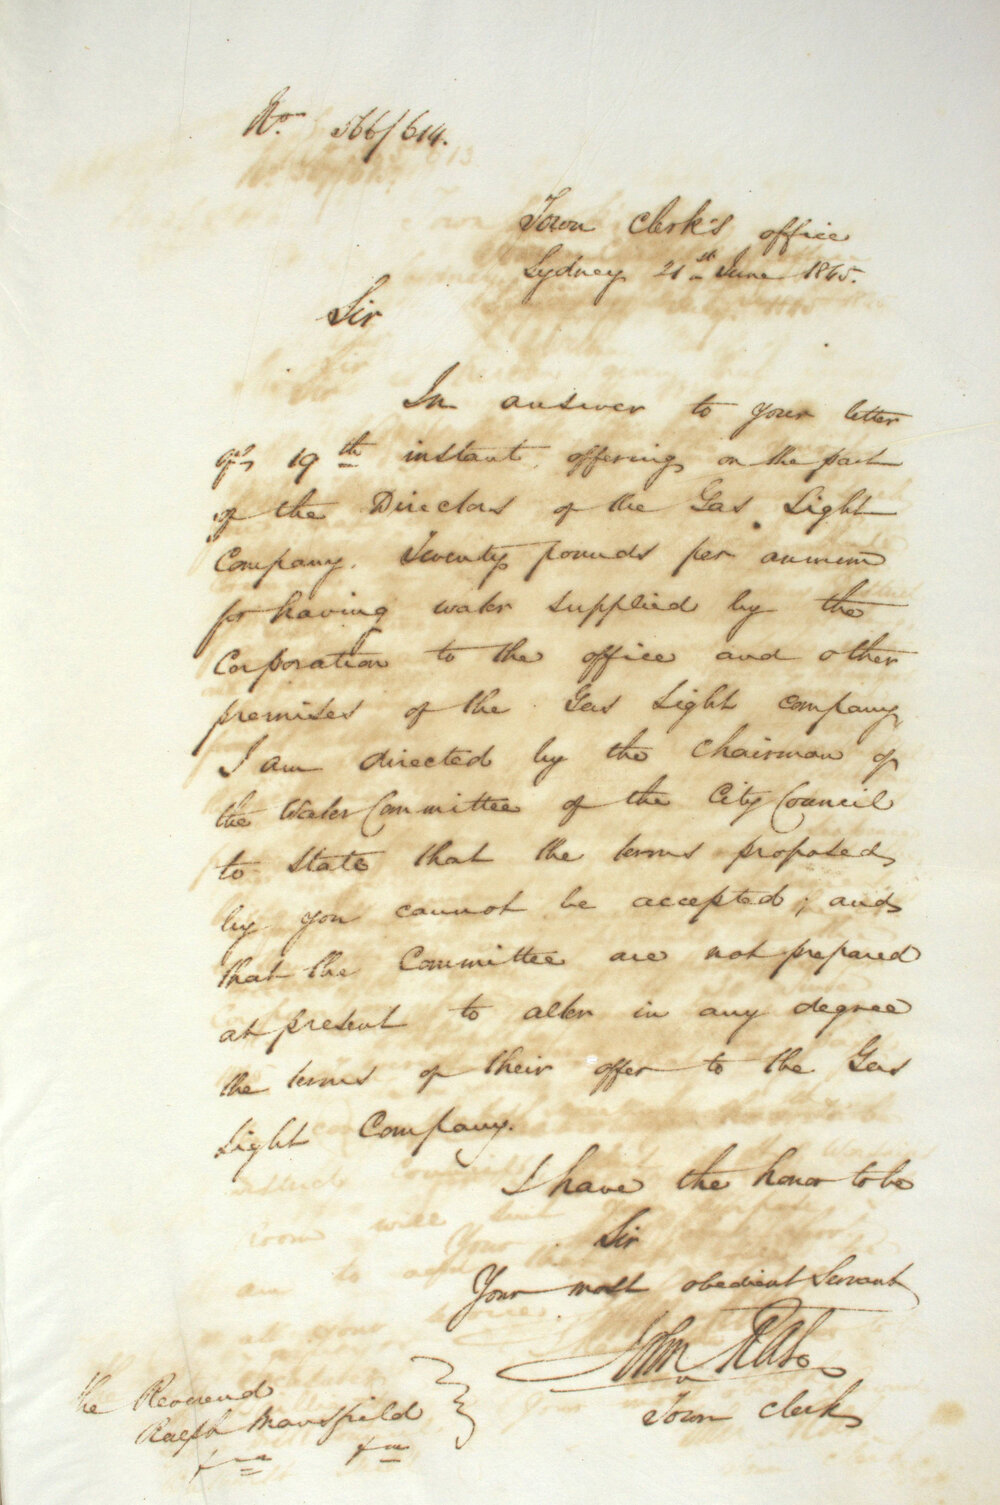 No. 566/614.
Town Clerk's office
Sydney 21st June 1865.
Sir
In answer to your letter
of 19th instant, offering on the part
of the Directors of the Gas Light
Company. Twenty pounds per annum
for having water supplied by the
Corporation to the office and other
premises of the Gas Light Company
I am directed by the Chairman of
the Water Committee of the City Council
to state that the terms proposed
by you cannot be accepted; and
that the Committee are not prepared
at present to alter in any degree
the terms of their offer to the Gas
Light Company.
I have the honor to be
Sir
Your most obedient Servant
John
Town Clerk
The Reverend
Ralph Mansfield